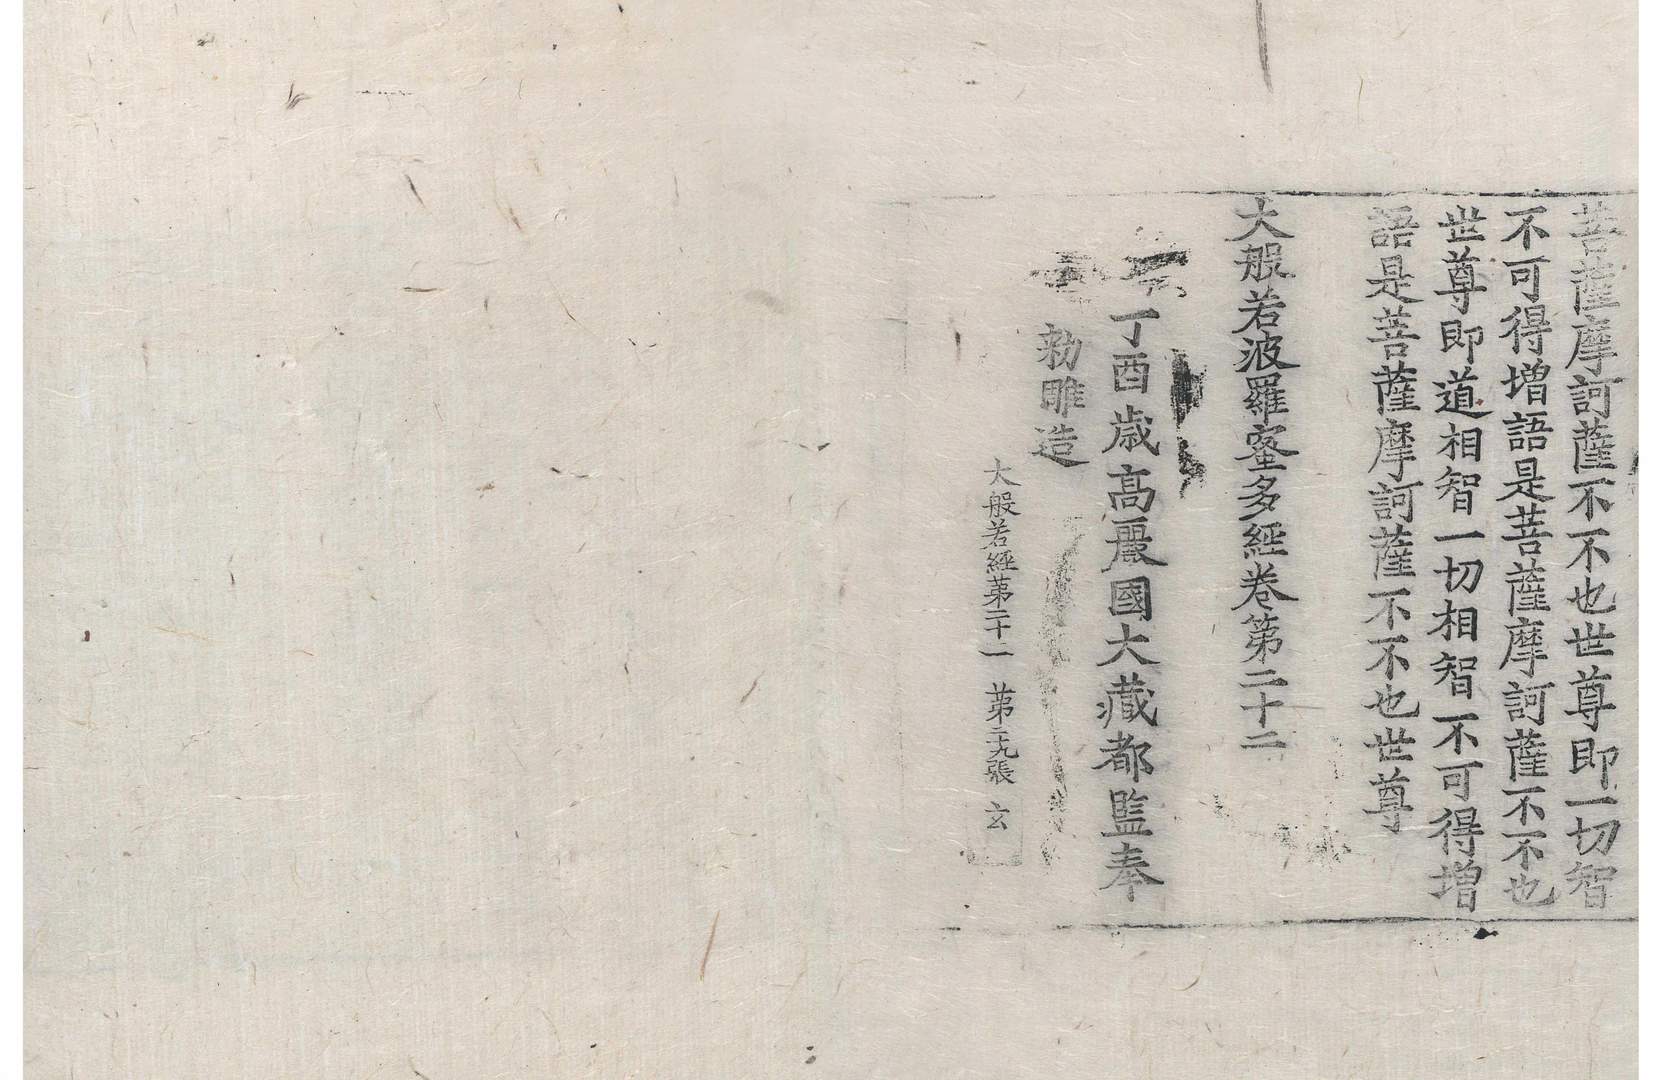 菩薩摩訶薩不不也世尊即一切智
不可得增語是菩薩摩訶薩不不也
世尊即道相智一切相智不可得增
語是菩薩摩訶薩不不也世尊
大般若波羅蜜多經卷第二十二
丁酉歳高麗國大藏都監奉
勑雕造
大般若經苐二十二 苐二十九張 玄